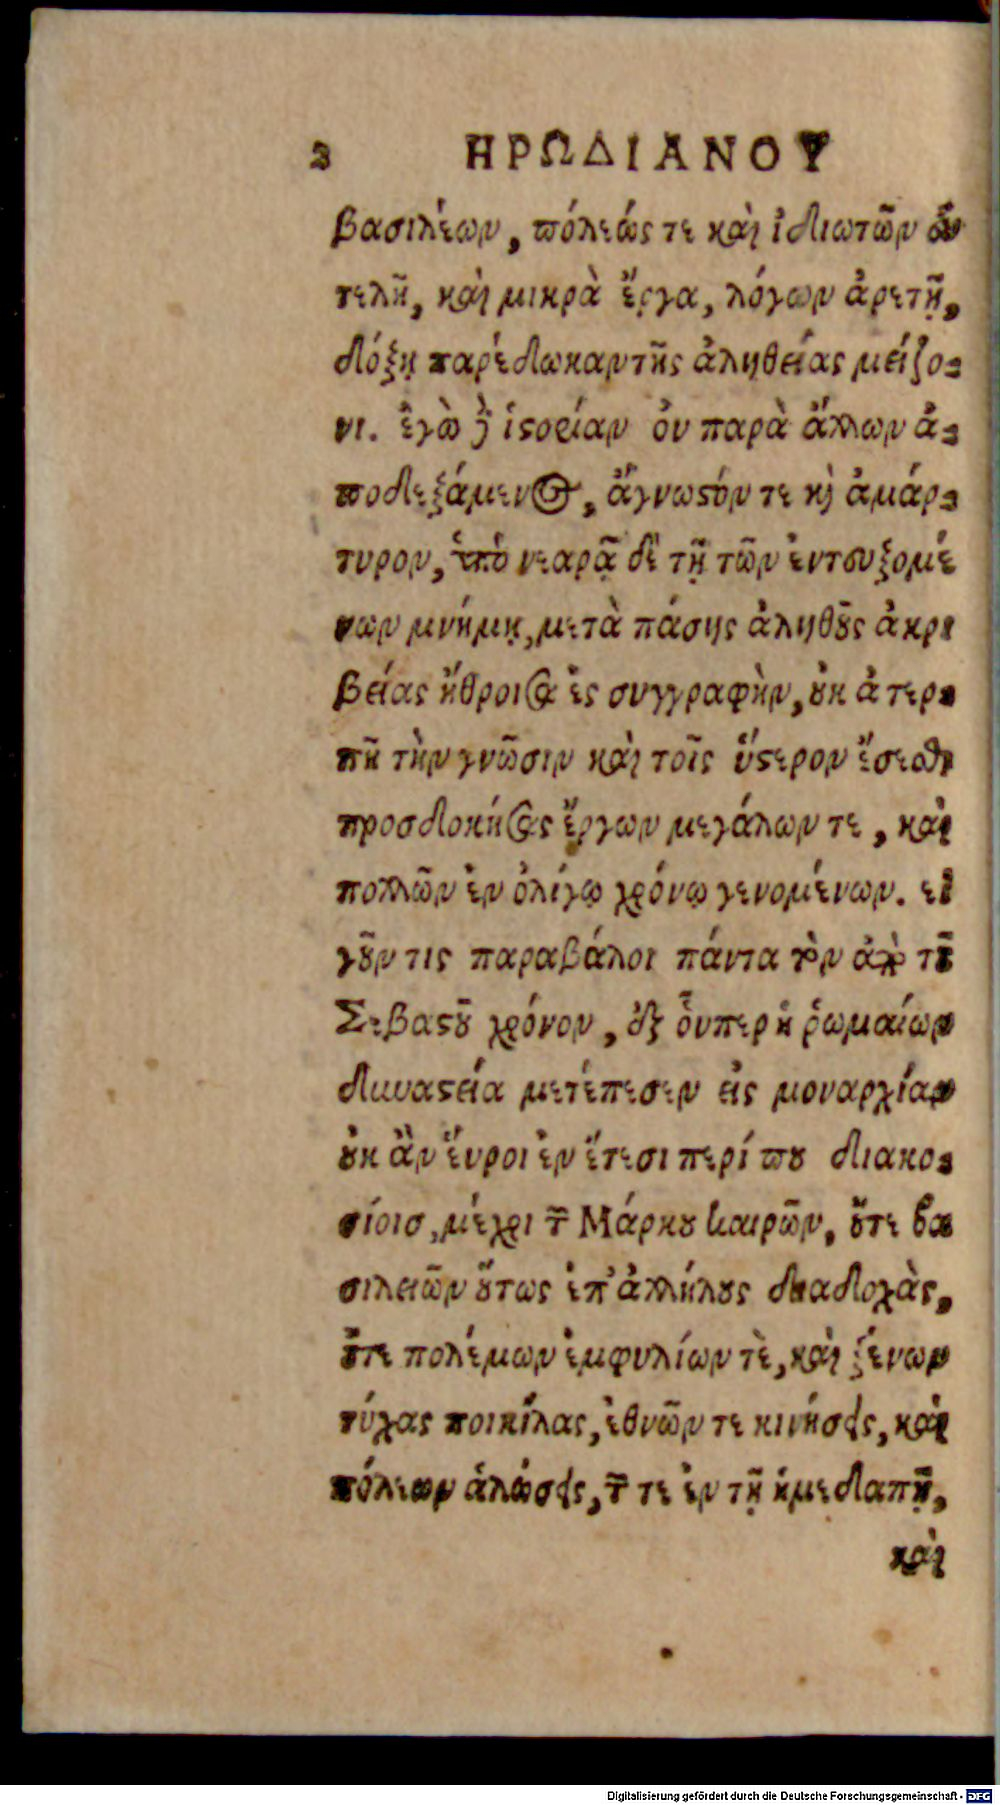 2 ΗΡΩΔΙΑΝΟΥ
βασιλέων, πόλεώς τε καὶ ἰδιωτῶν εὐ
τελῆ, καὶ μικρὰ ἔργα, λόγων ἀρετῇ,
δόξῃ παρέδωκαν τῆς ἀληθείας μείζο-
νι. ἐγὼ δ' ἱϛορίαν οὐ παρὰ ἄλλων ἀ-
ποδεξάμενος, ἄγνωϛόν τε κ̀ ἀμάρ-
τυρον, ὑπὸ νεαρᾷ δὲ τῇ τῶν ἐντευξομέ
νων μνήμῃ, μετὰ πάσης ἀληθοῦς ἀκρι
βείας ἤθροισα ἐς συγγραφὴν, οὐκ ἀτερ-
πῆ τὴν γνῶσιν καὶ τοῖς ὕϛερον ἔσεσθαι
προσδοκήσας ἔργων μεγάλων τε, καὶ
πολλῶν ἐν ὀλίγῳ χρόνῳ γενομένων. εἰ
γοῦν τις παραβάλοι πάντα τὸν ἀπὸ τοῦ
Σεβαϛοῦ χρόνον, ἐξ οὗπερ ἡ ῥωμαίων
δυναϛεία μετέπεσεν εἰς μοναρχίαν
οὐκ ἂν εὕροι ἐν ἔτεσι περί που διακο-
σίοισ, μέχρι τῶν Μάρκου καιρῶν, οὔτε βα
σιλειῶν οὕτως ἐπ' ἀλλήλους διαδοχὰς,
οὔτε πολέμων ἐμφυλίων τὲ, καὶ ξένων
τύχας ποικίλας, ἐθνῶν τε κινήσεις, καὶ
πόλεων ἁλώσεις, τῶν τε ἐν τῇ ἡμεδαπῇ,
καὶ
Digitalisierung gefördert durch die Deutsche Forschungsgemeinschaft - DFG